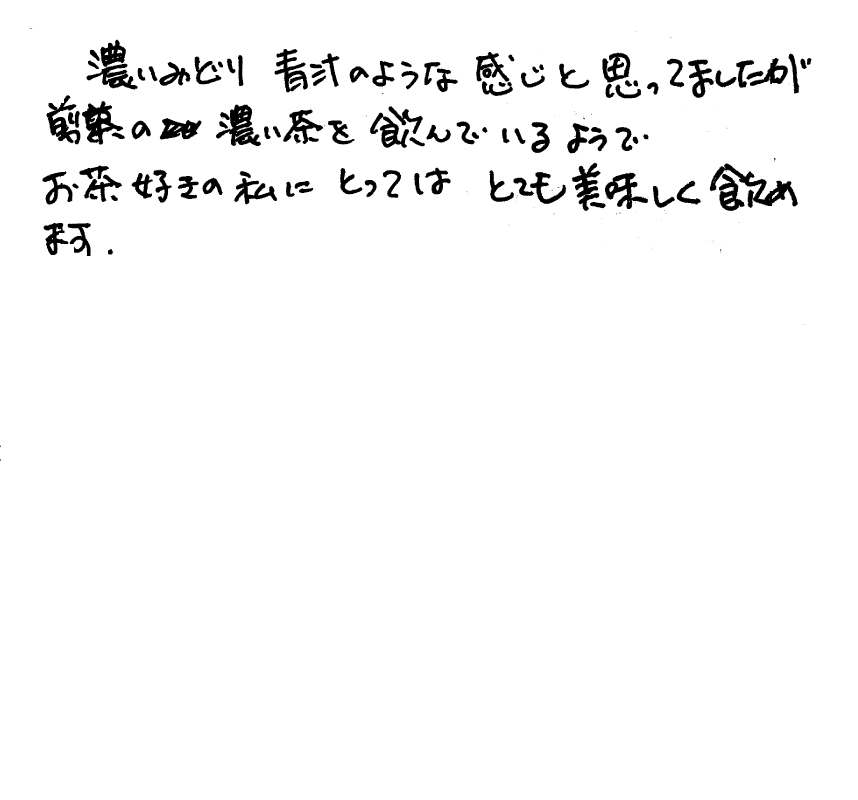 濃いみどり 青汁のような 感じと 思ってましたが
煎茶の 濃い茶を 飲んで いる ようで
お茶 好きの 私に とっては とても美味しく飲め
ます.